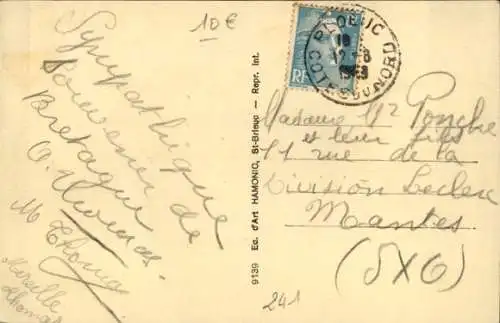 10€
Sympathique
Souvenir de
Bretagne
M Thomas
Mireille
Thomas
9139 Ed. d'Art HAMONIC, St-Brieuc — Repr. Int.
241
PLOEUC
18
1949
COTES DU NORD
RF
Madame Mz
et leur fils
11 rue de la
Division Leclerc
Mantes
(S X O)